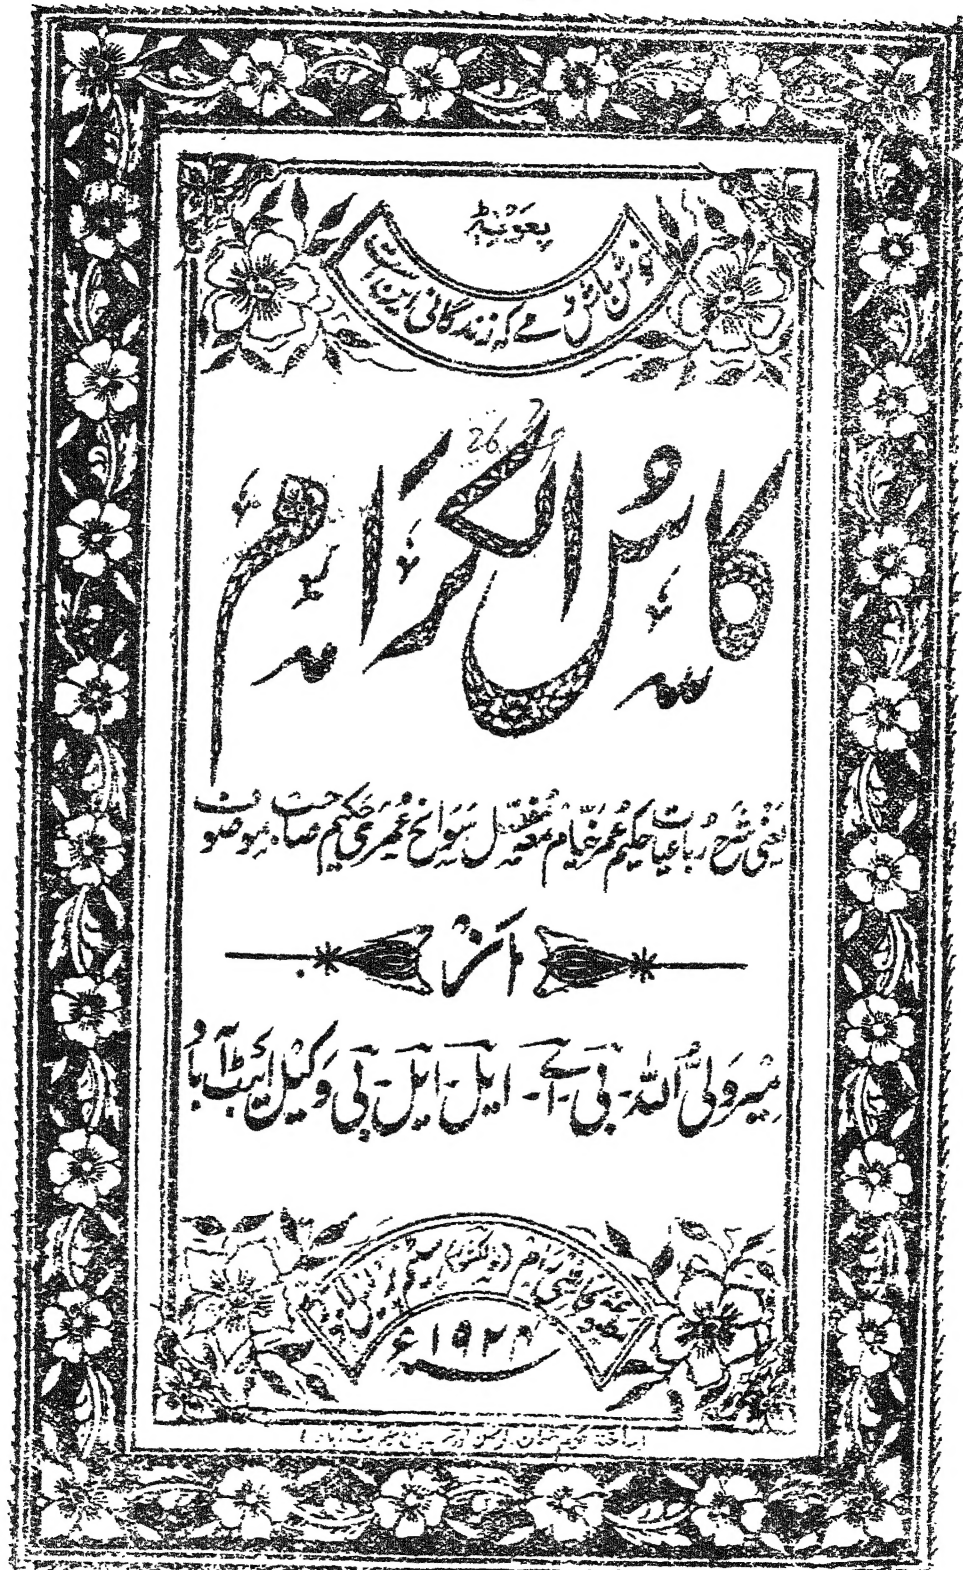 بعونہٖ
خوش باش دمے کہ زندگانی این است
26
کاسُ الکرام
یعنی شرح رباعیات حکیم عمر خیام معہ مفصل سوانح عمری حکیم صاحب موصوف
از
میر ولی اللہ۔ بی۔ اے۔ ایل۔ ایل۔ بی وکیل ایبٹ آباد
رام
سٹیم پریس
۱۹۲۸ء